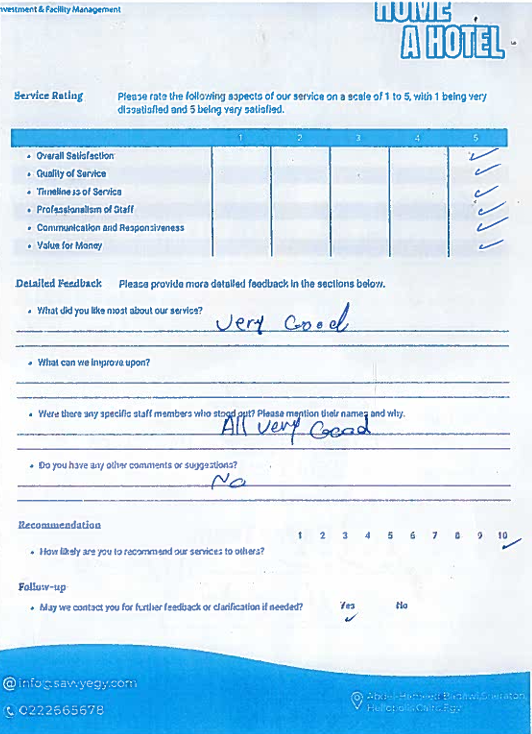 nvestment & Facility Management
HOME
A HOTEL
Service Rating Please rate the following aspects of our service on a scale of 1 to 5, with 1 being very
dissatisfied and 5 being very satisfied.
1 2 3 4 5
• Overall Satisfaction ✓
• Quality of Service ✓
• Timeliness of Service ✓
• Professionalism of Staff ✓
• Communication and Responsiveness ✓
• Value for Money ✓
Detailed Feedback Please provide more detailed feedback in the sections below.
• What did you like most about our service?
Very Good
• What can we improve upon?
• Were there any specific staff members who stood out? Please mention their names and why.
All very Good
• Do you have any other comments or suggestions?
No
Recommendation
1 2 3 4 5 6 7 8 9 10
• How likely are you to recommend our services to others? ✓
Follow-up
• May we contact you for further feedback or clarification if needed? Yes No
✓
@ info@savvyegy.com
0222665678
Abdel-Hameed Badawi, Sheraton,
Heliopolis Cairo, Egy